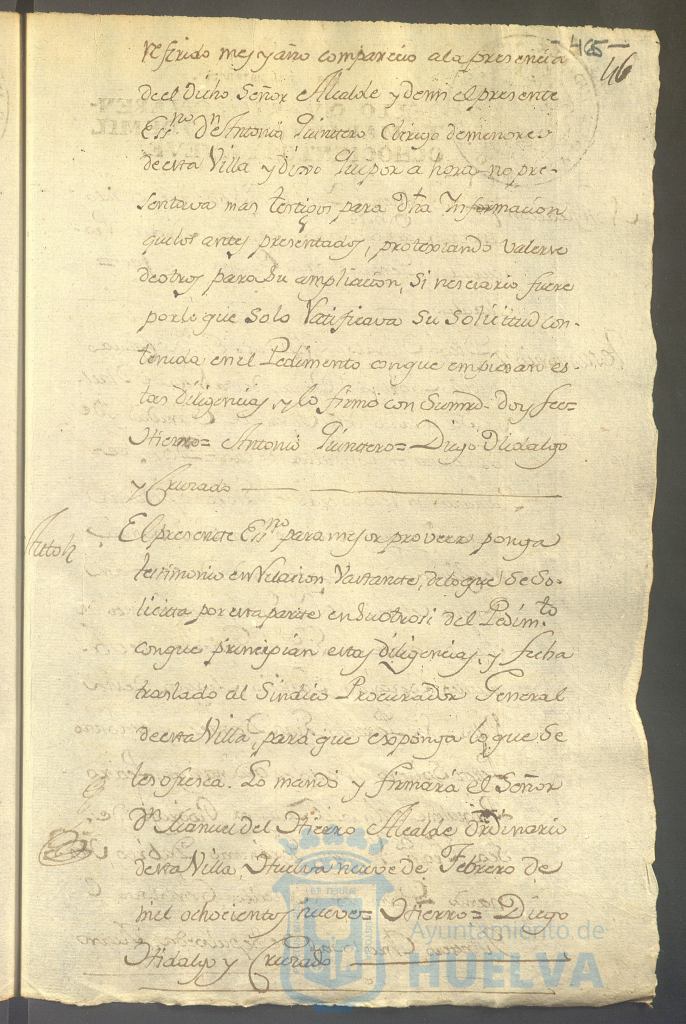 -465-
46
referido mes y año comparecio a la presencia
de el Dicho Señor Alcalde y de mi el presente
Essno Dn Antonio Quintero Clerigo de menores
de esta Villa y dixo Que por a hora no pre-
sentava mas testigos para dha Informacion
que los antes presentados, protextando valerse
de otros para su ampliacion, si nescesario fuere
por lo que solo Ratificava su solicitud con-
tenida en el Pedimento con que empiesan es-
tas Diligencias, y lo firmó con Sumrd. doy fee=
Hierro= Antonio Quintero= Diego Hidalgo
y Cruzado
Auto
El presente Essno para mejor proveer ponga
testimonio en Relacion Vastante, de lo que se so-
licita por esta parte en su otrosi del Pedimto
con que principian estas Diligencias, y fecha
traslado al Sindico Procurador General
de esta Villa, para que exponga lo que se
les ofresca. Lo mandó y firmará el Señor
Dn Manuel del Hierro Alcalde Ordinario
de esta Villa, Huelva nueve de Febrero de
mil ochocientos nueve= Hierro= Diego
Hidalgo y Cruzado
Ayuntamiento de
HUELVA